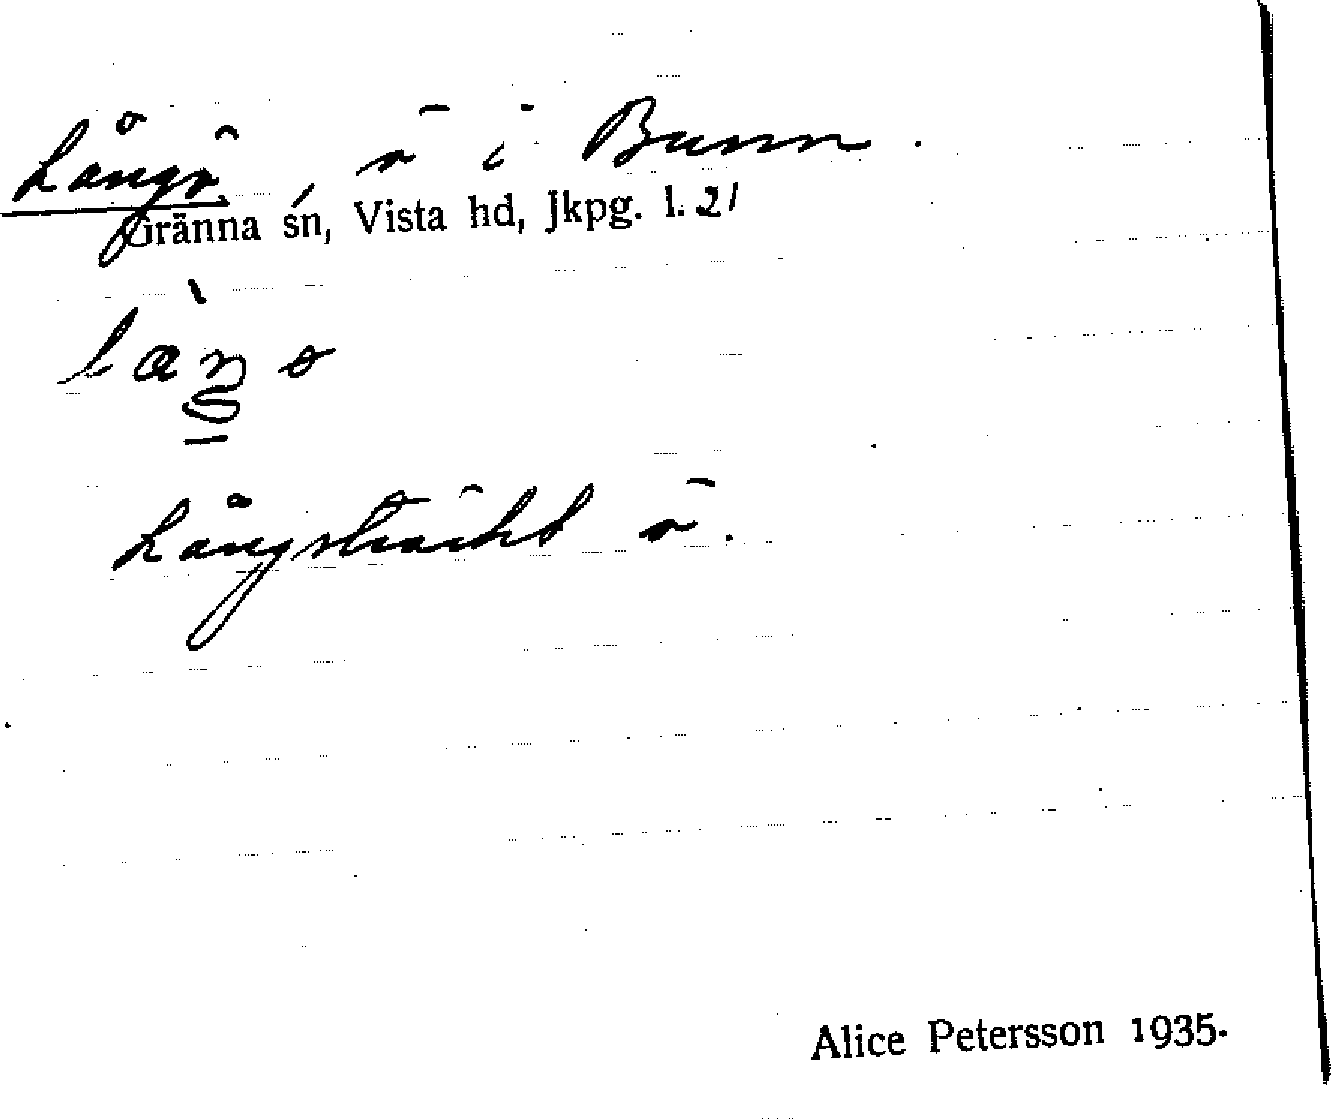 Långö, ö i Bunn.
Gränna sn, Vista hd, Jkpg. l. 21
Långsträckt ö.
Alice Petersson 1935.